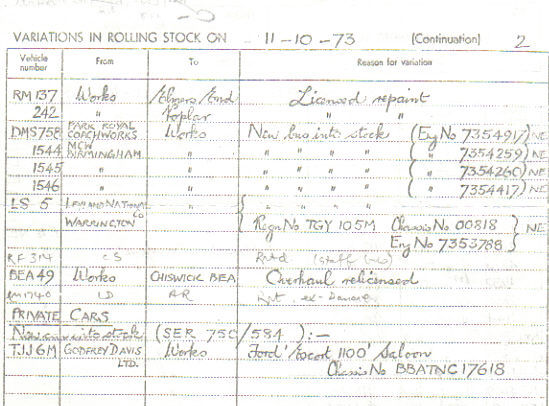 VARIATIONS IN ROLLING STOCK ON 11-10-73 (Continuation) 2
Vehicle number From To Reason for variation
RM 137 Works Elmers End Licensed repaint
242 " Poplar " "
DMS 758 PARK ROYAL COACHWORKS Works New bus into stock (Eng No 7354917) NE
1544 MCW BIRMINGHAM " " " " " ( " 7354259) NE
1545 " " " " " " ( " 7354260) NE
1546 " " " " " " ( " 7354417) NE
LS 5 LEYLAND NATIONAL CO " " " " "
WARRINGTON Regn No TGY 105M Chassis No 00818 NE
Eng No 7353788
RF 314 CS Rntd (staff
BEA 49 Works CHISWICK BEA Overhaul relicensed
RM 1740 LD AR Rnt. ex-
PRIVATE CARS
New car into stock (SER 75C/584 ):—
TJJ 6M GODFREY DAVIS LTD. Works Ford 'Escort 1100' Saloon
Chassis No BBATNC17618